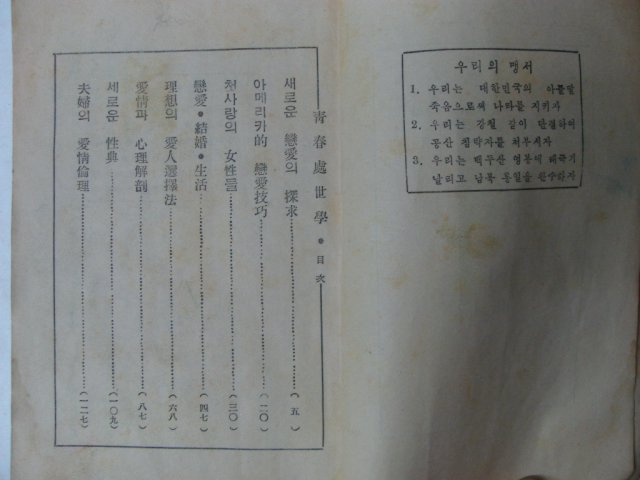 우리의 맹서
1. 우리는 대한민국의 아들딸
죽음으로써 나라를 지키자
2. 우리는 강철 같이 단결하여
공산 침략자를 처부시자
3. 우리는 백두산 영봉에 태극기
날리고 남북 통일을 완수하자
靑春處世學 • 目次
새로운 戀愛의 探求 (五)
아메리카的 戀愛技巧 (一〇)
첫사랑의 女性들 (三〇)
戀愛•結婚•生活 (四七)
理想의 愛人選擇法 (六八)
愛情과 心理解剖 (八七)
새로운 性典 (一〇九)
夫婦의 愛情倫理 (一二七)